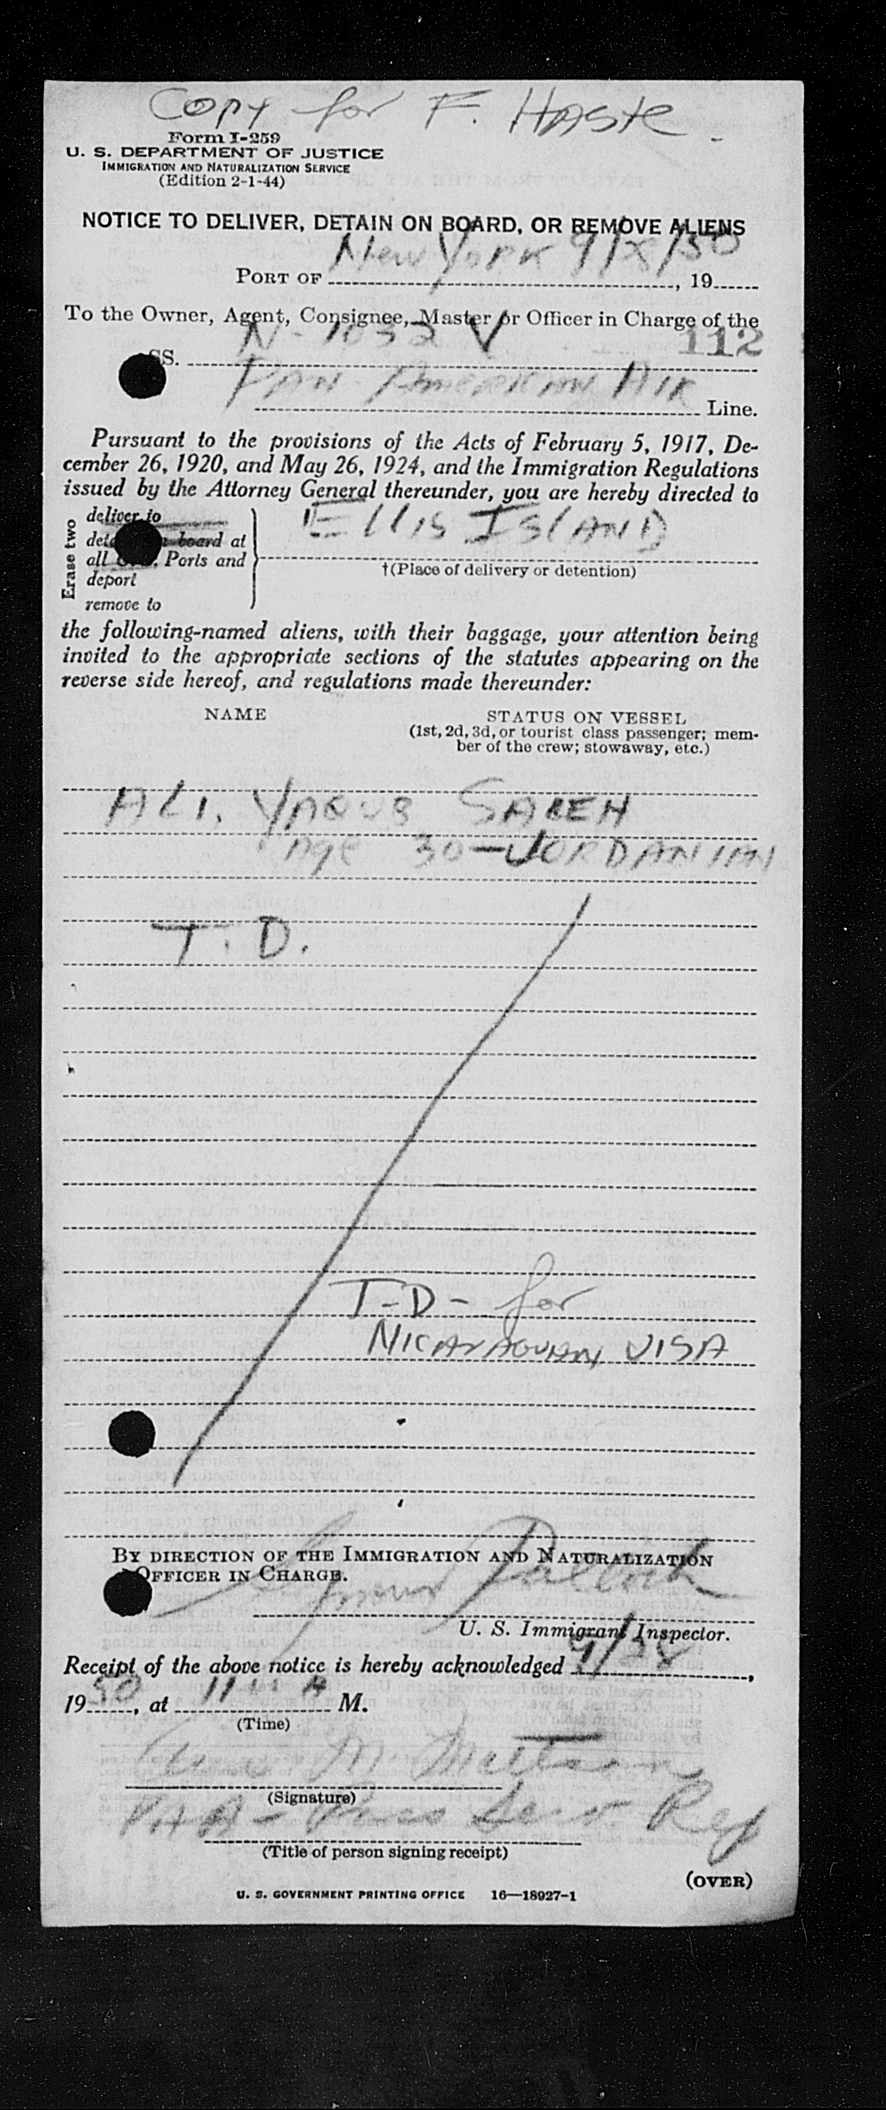 Copy for F. HASTE
Form I-259
U. S. DEPARTMENT OF JUSTICE
IMMIGRATION AND NATURALIZATION SERVICE
(Edition 2-1-44)
NOTICE TO DELIVER, DETAIN ON BOARD, OR REMOVE ALIENS
New York 9/28/50
PORT OF , 19
To the Owner, Agent, Consignee, Master or Officer in Charge of the
N-1032 V 112
SS.
PAN-AMERICAN AIR
Line.
Pursuant to the provisions of the Acts of February 5, 1917, De-
cember 26, 1920, and May 26, 1924, and the Immigration Regulations
issued by the Attorney General thereunder, you are hereby directed to
Erase two
deliver to
on board at
all Ports and
deport
remove to
ELLIS ISLAND
†(Place of delivery or detention)
the following-named aliens, with their baggage, your attention being
invited to the appropriate sections of the statutes appearing on the
reverse side hereof, and regulations made thereunder:
NAME STATUS ON VESSEL
(1st, 2d, 3d, or tourist class passenger; mem-
ber of the crew; stowaway, etc.)
ALI, YAQUB SALEH
Age 30-JORDANIAN
T. D.
T-D- for
NICARAGUAN VISA
BY DIRECTION OF THE IMMIGRATION AND NATURALIZATION
OFFICER IN CHARGE.
U. S. Immigrant Inspector.
Receipt of the above notice is hereby acknowledged 9/28,
1950, at 11 A M.
(Time)
M.
(Signature)
PAA- Pass Serv. Rep
(Title of person signing receipt)
(OVER)
U. S. GOVERNMENT PRINTING OFFICE 16—18927-1